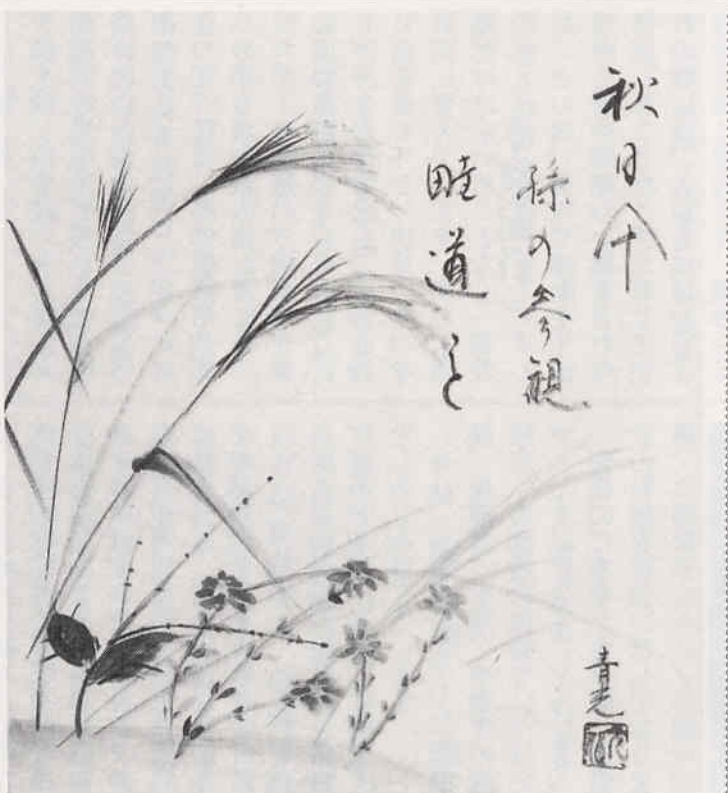 秋日傘
孫の参観
畦道を
青光